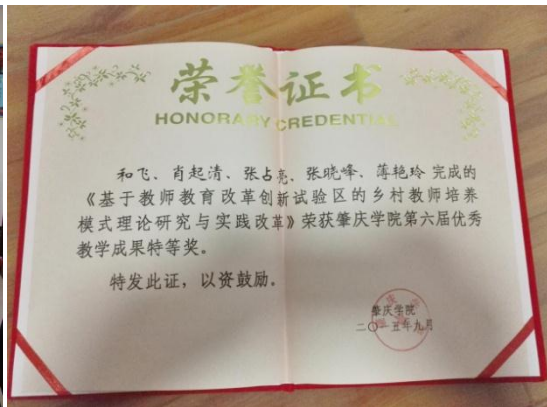 荣誉证书
HONORARY CREDENTIAL
和飞、肖起清、张占亮、张晓峰、薄艳玲 完成的
《基于教师教育改革创新试验区的乡村教师培养
模式理论研究与实践改革》荣获肇庆学院第六届优秀
教学成果特等奖。
特发此证，以资鼓励。
肇庆学院
二〇一五年九月